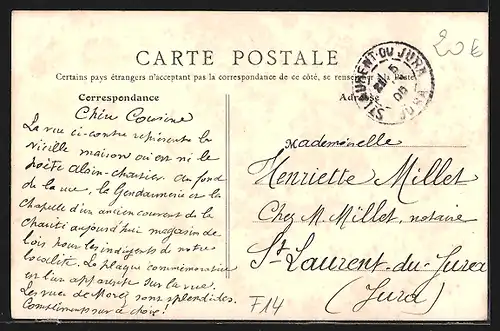 20€
CARTE POSTALE
Certains pays étrangers n'acceptant pas la correspondance de ce côté, se renseigner à la Poste
Correspondance
Adresse
ST LAURENT-DU-JURA
JURA
Chère Cousine
La vue ci-contre représente la
vieille maison où on né le
poète Alain-chartier. Au fond
de la rue, la Gendarmerie et la
chapelle d'un ancien couvent de la
charité aujourd'hui magasin de
bois pour les indigents de notre
localité. La plaque commémorative
est bien apparente sur la vue.
Les vues de Morez sont splendides.
Compliments sur le choix!
Mademoiselle
Henriette Millet
Chez M. Millet, notaire
St Laurent-du-Jura
(Jura)
F14